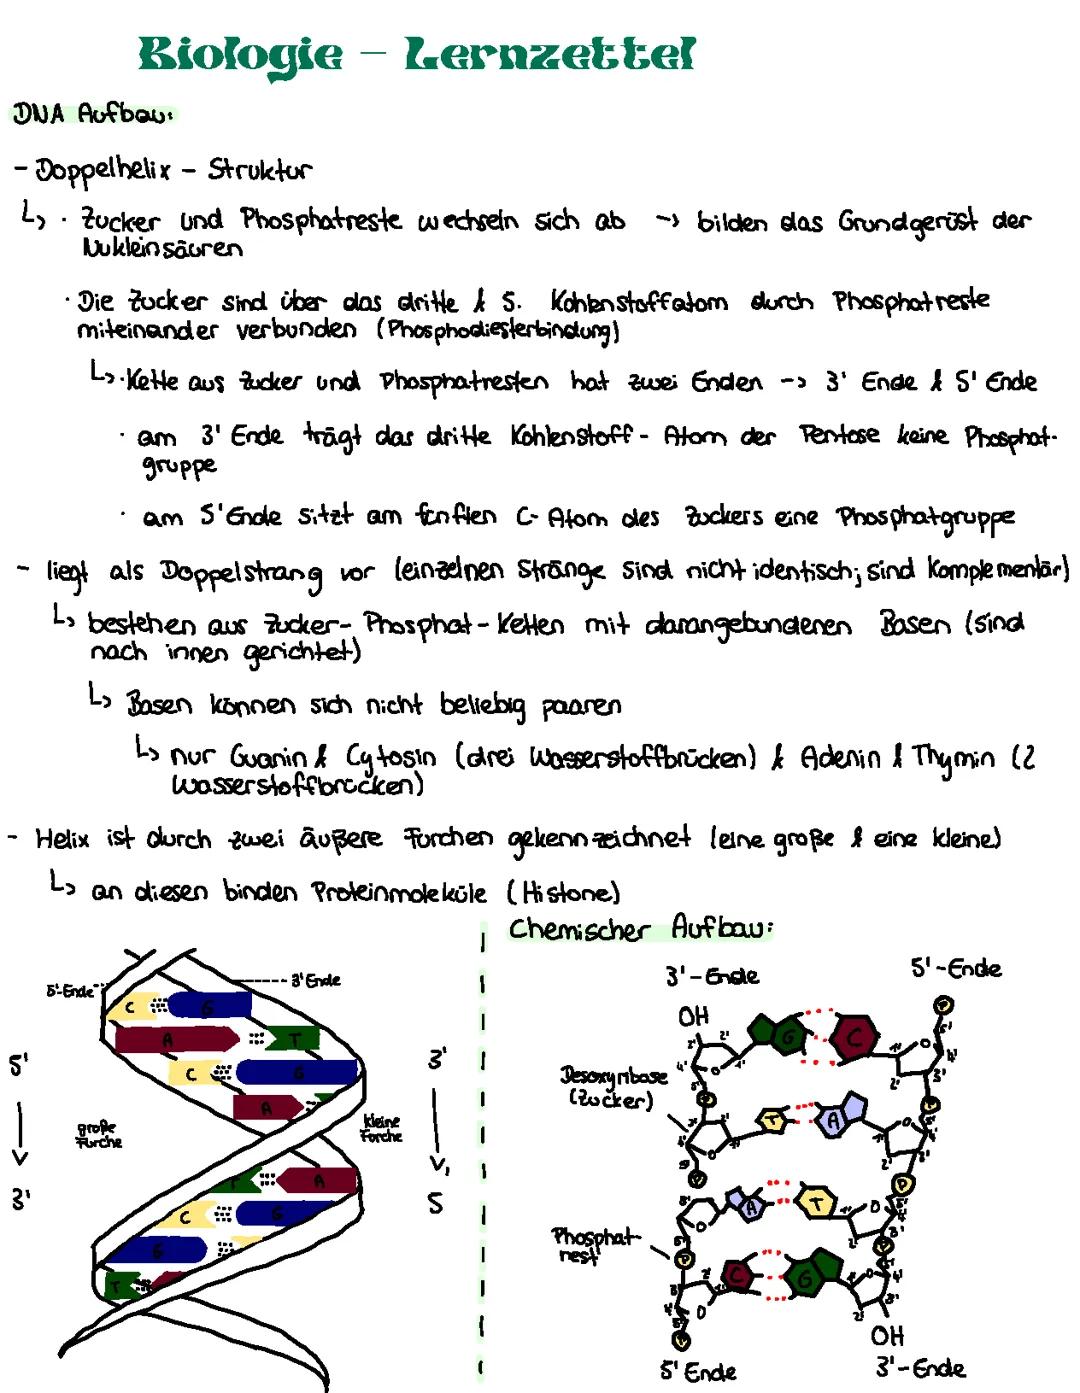 Biologie – Lernzettel
DNA Aufbau:
- Doppelhelix - Struktur
↳ · Zucker und Phosphatreste wechseln sich ab -> bilden das Grundgerüst der
Nukleinsäuren
· Die Zucker sind über das dritte & 5. Kohlenstoffatom durch Phosphatreste
miteinander verbunden (Phosphodiesterbindung)
↳ · Kette aus Zucker und Phosphatresten hat zwei Enden --> 3' Ende & 5' Ende
· am 3' Ende trägt das dritte Kohlenstoff - Atom der Pentose keine Phosphat-
gruppe
· am 5' Ende sitzt am fünften C- Atom des Zuckers eine Phosphatgruppe
- liegt als Doppelstrang vor (einzelnen Stränge sind nicht identisch; sind komplementär)
↳ bestehen aus Zucker- Phosphat - Ketten mit darangebundenen Basen (sind
nach innen gerichtet)
↳ Basen können sich nicht beliebig paaren
↳ nur Guanin & Cytosin (drei Wasserstoffbrücken) & Adenin & Thymin (2
Wasserstoffbrücken)
- Helix ist durch zwei äußere Furchen gekennzeichnet (eine große & eine kleine)
↳ an diesen binden Proteinmoleküle (Histone)
5'-Ende
3' Ende
C G
A T
C G
A
5'
3'
große
Furche
kleine
Furche
3'
5
T A
C G
G
T
Chemischer Aufbau:
3'-Ende
5'-Ende
OH
P
G C
Desoxyribose
(Zucker)
P
P
T A
P
P
A T
Phosphat-
rest
P
P
C G
P
OH
5' Ende
3'-Ende